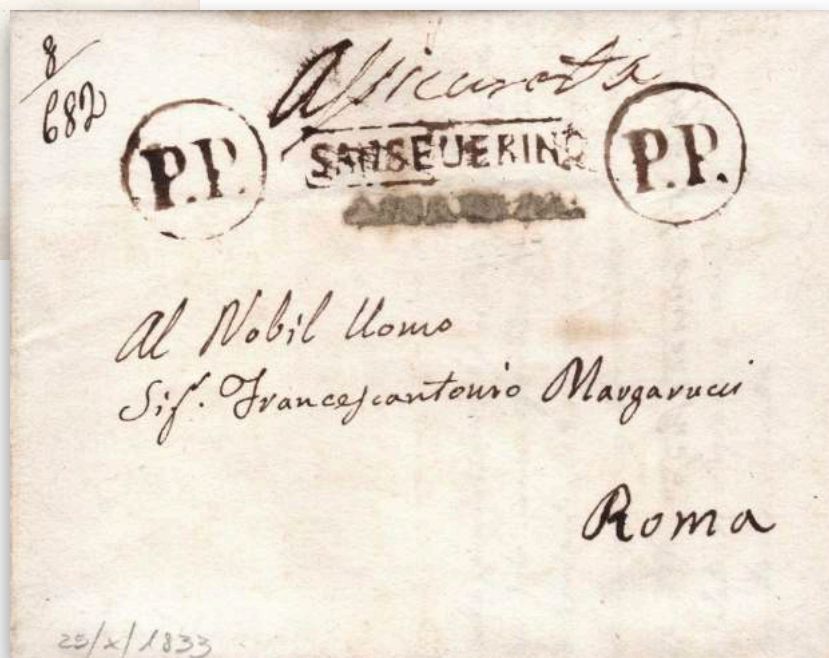 8/682
Assicurata
P.P. SANSEUERINO P.P.
Al Nobil Uomo
Sig. Francescantonio Margarucci
Roma
25/X/1833